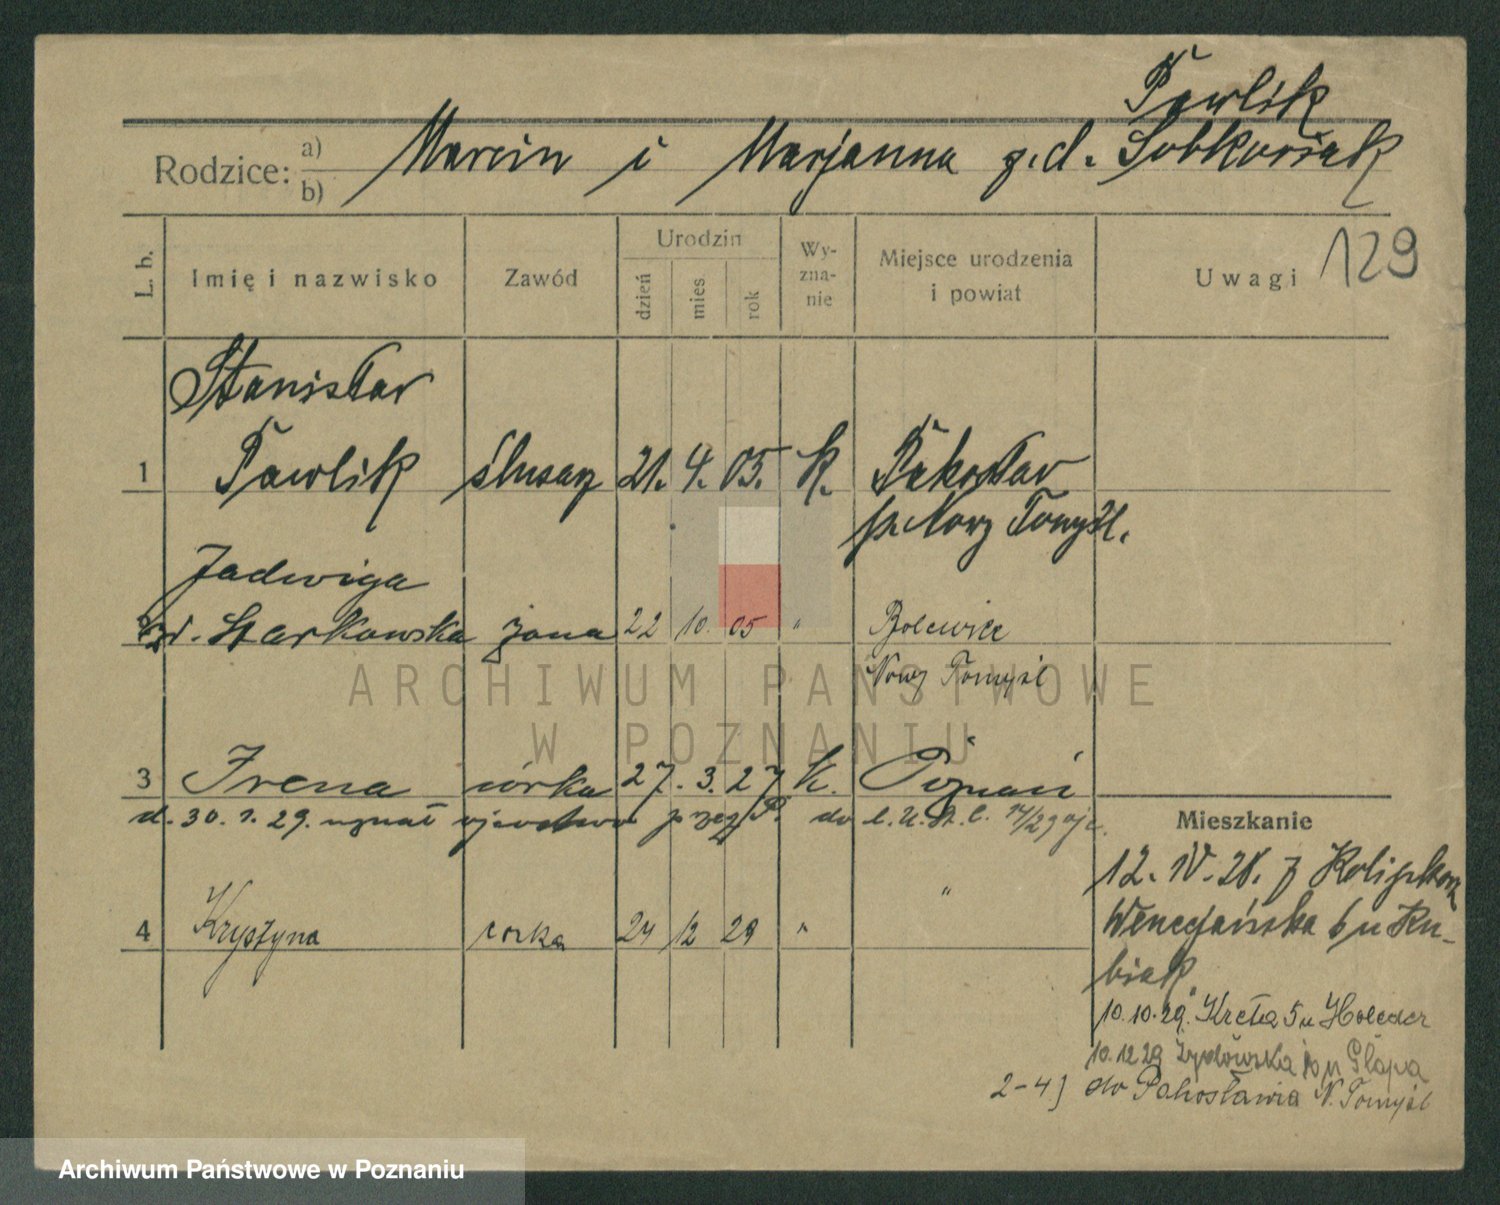 Pawlik
Rodzice: a) b) Marcin i Marjanna z.d. Sobkowiak
129
L. b. Imię i nazwisko Zawód Urodzin dzień mies. rok Wyznanie Miejsce urodzenia i powiat Uwagi
Stanisław
1 Pawlik ślusarz 21. 4. 05. k. Pakosław
p. Nowy Tomyśl.
Jadwiga
zd. Starkowska żona 22 10. 05 " Bolewice
Nowy Tomyśl
3 Irena córka 27. 3. 27 k. Poznań
d. 30. 1. 29. uznał ojcostwo przez P. do
Mieszkanie
12. IV. 28. z
Wenecjańska 6 u Ku-
biak
4 Krystyna corka 24 12 29 " "
10.10.29. Kręta 5 u
10.12 29 Żydowska u Głapa
2-4) do Pakosławia N. Tomyśl
ARCHIWUM PAŃSTWOWE
W POZNANIU
Archiwum Państwowe w Poznaniu